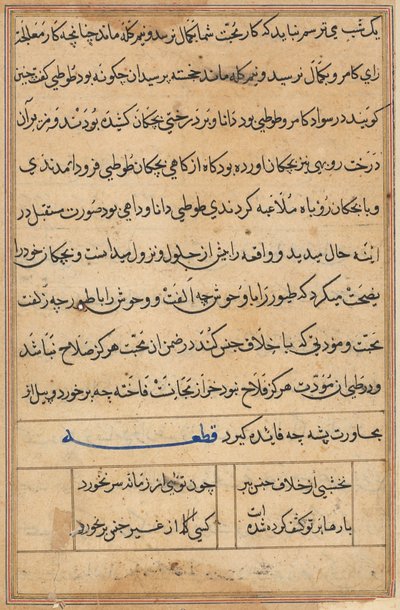 یک شب می ترسم نباید که کار محبت شما بکمال نرسد و نیم کله ماند چنانچه کار معالجت
رای کامرو بکمال نرسید و نیم کله ماند خجسته پرسید آن چکونه بود طوطی کفت چنین
کویند در سواد کامرو طوطی بود دانا و بر درختی بچکان کشیده بودند و زیر آن
درخت روبهی نیز بچکان آورده بود کاه از کاهی بچکان طوطی فرود آمدندی
و با بچکان روباه ملاعبه کردندی طوطی دانا و داهی بود صورت مستقبل در
آینه حال میدید و واقعه را پیش از حلول و نزول میدانست و بچکان خود را
نصیحت میکرد که طیور را با وحوش چه الفت و وحوش را با طیور چه زلفت
محبت و مودتی که با خلاف جنس کنند در ضمن آن محبت هرکز صلاح نباشد
و در طی آن مودت هرکز فلاح نبود خر از مجانست فاخته چه برخورد و پیل از
مجاورت پشه چه فایده کیرد قطعه
نخشبی از خلاف جنس ببر
چون توئی از زمانه سر نخورد
بارها بر تو کشف کرده شده است
کسی که از غیر جنس برخورد